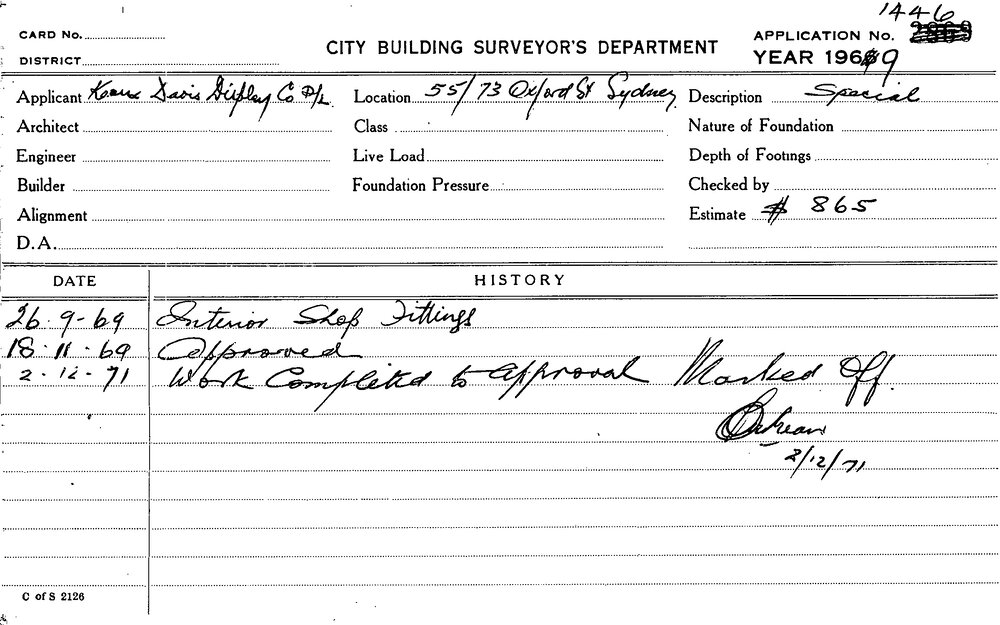 1446
CARD No.
APPLICATION No. 2869
CITY BUILDING SURVEYOR'S DEPARTMENT
DISTRICT
YEAR 1969
Applicant Davis Display Co P/L
Location 55/73 Oxford St Sydney
Description Special
Architect
Class
Nature of Foundation
Engineer
Live Load
Depth of Footings
Builder
Foundation Pressure
Checked by
Alignment
Estimate $ 865
D.A.
DATE
HISTORY
26.9-69 Interior Shop Fittings
18.11.69 Approved
2-12-71 Work Completed to approval Marked Off.
2/12/71
C of S 2126